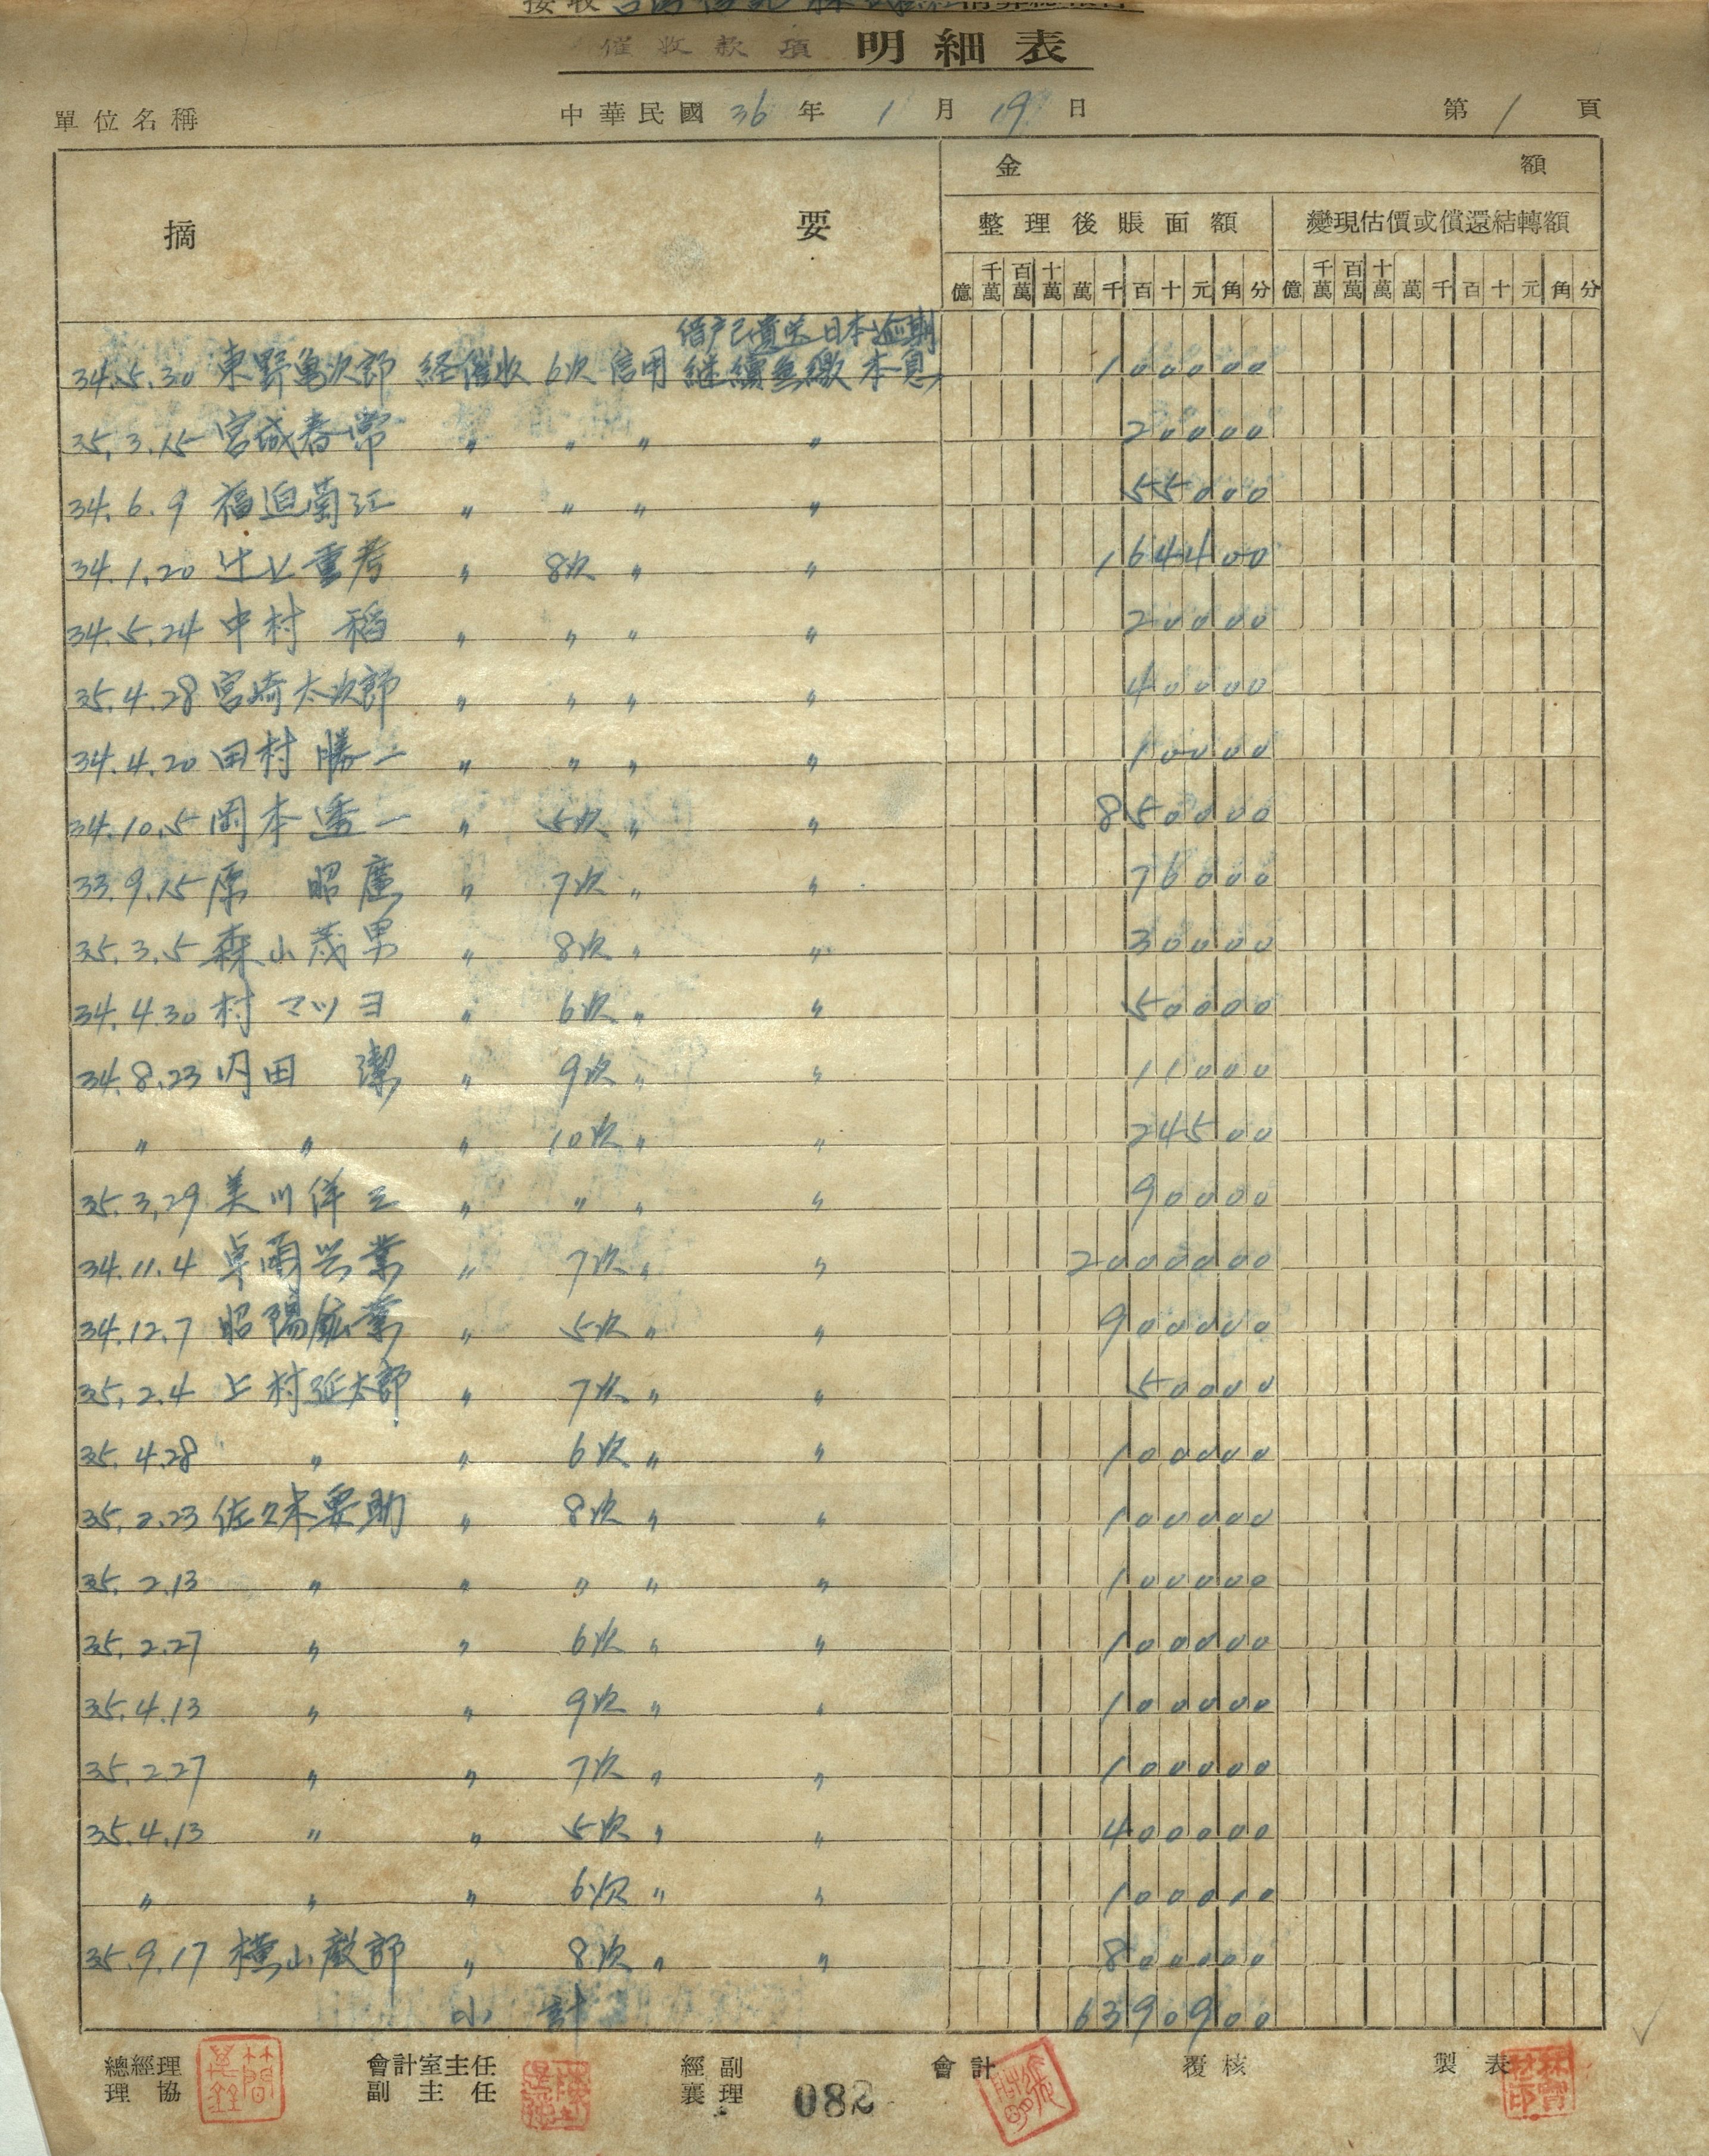 催收款項 明細表
單位名稱 中華民國 36 年 1 月 19 日 第 1 頁
摘 要 金 額
整理後賬面額 變現估價或償還結轉額
億 千萬 百萬 十萬 萬 千 百 十 元 角 分 億 千萬 百萬 十萬 萬 千 百 十 元 角 分
借戶已遣送日本逾期
34.5.30 東野亀次郎 経催收 6次 信用 継續無繳本息 100000
35.3.15 宮城春常 〃 〃 〃 〃 20000
34.6.9 福迫蘭江 〃 〃 〃 〃 55000
34.1.20 辻止重孝 〃 8次 〃 〃 164400
34.5.24 中村 稻 〃 〃 〃 〃 20000
35.4.28 宮崎太次郎 〃 〃 〃 〃 40000
34.4.20 田村勝一 〃 〃 〃 〃 10000
34.10.5 岡本透一 〃 5次 〃 〃 850000
33.9.15 原 昭廣 〃 7次 〃 〃 76000
35.3.5 森山茂男 〃 8次 〃 〃 30000
34.4.30 村 マツヨ 〃 6次 〃 〃 50000
34.8.23 内田 潔 〃 9次 〃 〃 11000
〃 〃 〃 10次 〃 〃 24500
35.3.29 美川保三 〃 〃 〃 〃 90000
34.11.4 卓南兴業 〃 7次 〃 〃 2000000
34.12.7 昭陽鉱業 〃 5次 〃 〃 900000
35.2.4 上村延太郎 〃 7次 〃 〃 50000
35.4.28 〃 〃 6次 〃 〃 100000
35.2.23 佐久木要助 〃 8次 〃 〃 100000
35.2.13 〃 〃 〃 〃 〃 100000
35.2.27 〃 〃 6次 〃 〃 100000
35.4.13 〃 〃 9次 〃 〃 100000
35.2.27 〃 〃 7次 〃 〃 100000
35.4.13 〃 〃 5次 〃 〃 400000
〃 〃 〃 6次 〃 〃 100000
35.9.17 横山敬郎 〃 8次 〃 〃 800000
小 計 6390900
總經理 會計室主任 經副 會計 覆核 製表
理協 副主任 襄理 082